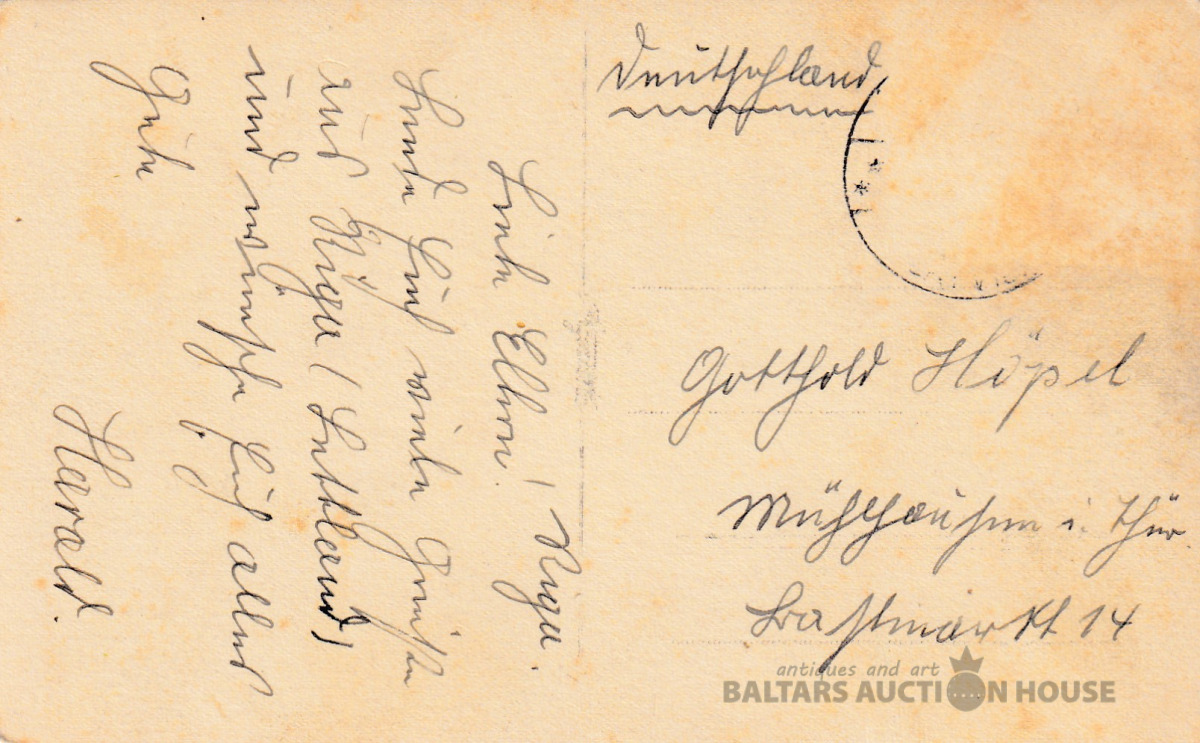 Riga.
Liebe Eltern!
Sende Euch viele Grüße
aus Riga (Lettland)
und wünsche Euch alles
Gute
Harald.
Deutschland
Gotthold Höpel
Mühlhausen i. Thür
Lastmarkt 14
antiques and art
BALTARS AUCTION HOUSE